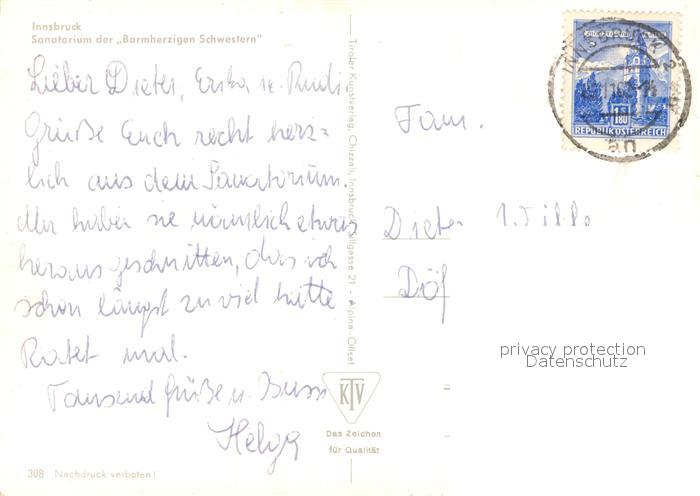 Innsbruck
Sanatorium der „Barmherzigen Schwestern"
Lieber Dieter, Erika u. Rudi.
Grüße Euch recht herz=
lich aus dem Sanatorium.
Mir haben sie nämlich etwas
herausgeschnitten, das ich
schon längst zu viel hatte
Ratet mal.
Tausend Grüße u. Bussi
Helga
308 Nachdruck verboten!
Tiroler Kunstverlag, Chizzali, Innsbruck, Sillgasse 21 - Alpina-Offset
KTV
Das Zeichen
für Qualität
INNSBRUCK 2
1.80
REPUBLIK ÖSTERREICH
Fam.
Dieter
privacy protection
Datenschutz